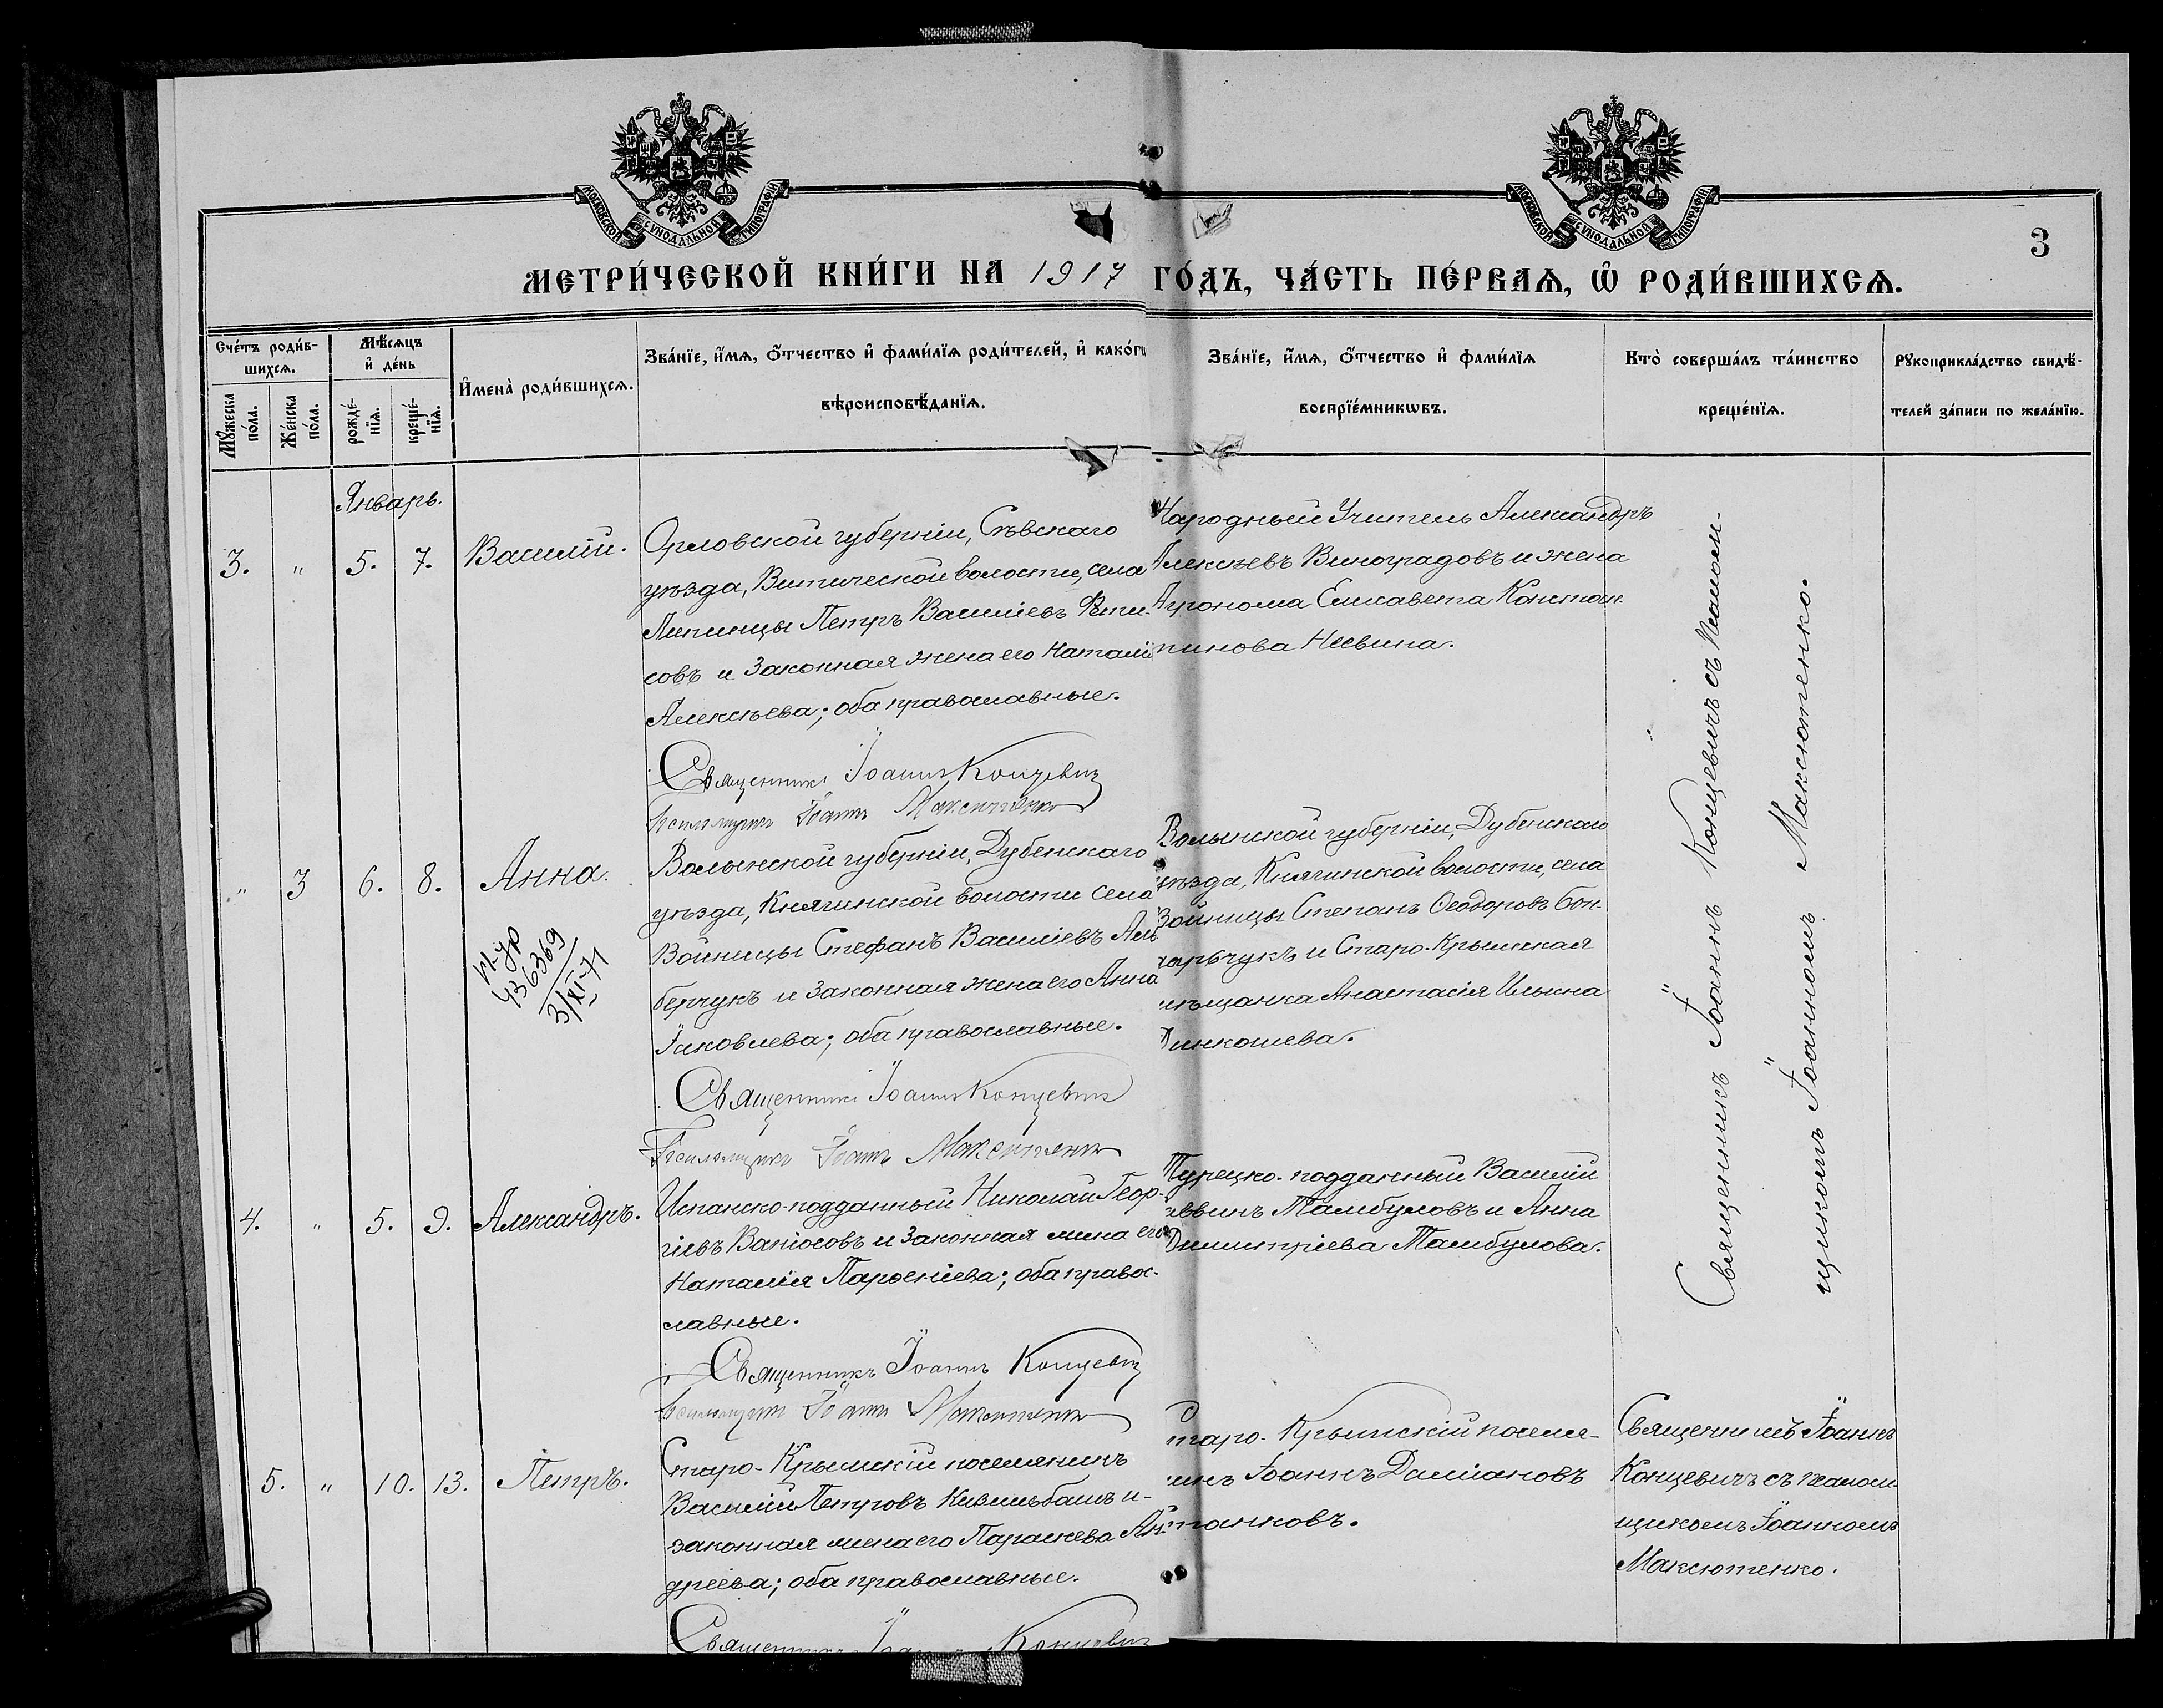 МОСКОВСКОЙ СѴНОДАЛЬНОЙ ТИПОГРАФІИ
МОСКОВСКОЙ СѴНОДАЛЬНОЙ ТИПОГРАФІИ
3
МЕТРИ́ЧЕСКОЙ КНИ́ГИ НА 1917 ГО́ДЪ, ЧА́СТЬ ПЕ́РВАѦ, Ѽ РОДИ́ВШИХСѦ.
Сче́тъ роди́в-
шихсѧ.
Мꙋ́жеска по́ла.
Же́нска по́ла.
Мѣ́сѧцъ
и҆ де́нь
рожде́-
нїѧ.
креще́-
нїѧ.
И҆мена̀ роди́вшихсѧ.
Зва́нїе, и҆́мѧ, ѻ҆́тчество и҆ фами́лїѧ роди́телей, и҆ како́гѡ
вѣроисповѣ́данїѧ.
Зва́нїе, и҆́мѧ, ѻ҆́тчество и҆ фами́лїѧ
воспрїе́мникѡвъ.
Кто̀ соверша́лъ та́инство
креще́нїѧ.
Рꙋкоприкла́дство свидѣ́-
телей за́писи по жела́нїю.
Январь.
3. " 5. 7. Василій.
Орловской губерніи, Сѣвскаго
уѣзда, Витической волости, села
Липницы Петръ Васильевъ Фети-
совъ и законная жена его Наталія
Алексѣева; оба православные.
Священникъ Іоаннъ Концевичъ
Псаломщикъ Іоаннъ Максютенко
Народный Учитель Александръ
Алексѣевъ Виноградовъ и жена
Агронома Елисавета Констан-
тинова Неевина.
Священникъ Іоаннъ Концевичъ съ Псалом-
щикомъ Іоанномъ Максютенко.
" 3 6. 8. Анна.
436369
3/XI-71
Волынской губерніи, Дубенскаго
уѣзда, Княгинской волости села
Войницы Стефанъ Васильевъ Аль
берчукъ и законная жена его Анна
Іаковлева; оба православные.
Священникъ Іоаннъ Концевичъ
Псаломщикъ Іоаннъ Максютенко
Волынской губерніи, Дубенскаго
уѣзда, Княгинской волости, села
Войницы Степанъ Ѳеодоровъ Бон-
дарьчукъ и Старо-Крымская
мѣщанка Анастасія Ильина
4. " 5. 9. Александръ.
Испанско-подданный Николай Геор-
гіевъ Ваніосовъ и законная жена его
Наталія Парѳеніева; оба право-
славные.
Священникъ Іоаннъ Концевичъ
Псаломщикъ Іоаннъ Максютенко
Турецко-подданный Василій
Саввинъ Тамбуловъ и Анна
Димитріева Тамбулова.
5. " 10. 13. Петръ.
Старо-Крымскій поселянинъ
Василій Петровъ Кизильбашъ и
законная жена его Параскева Ан-
дреева; оба православные.
Священникъ Іоаннъ Концевичъ
Старо-Крымскій поселя-
нинъ Іоаннъ Даміановъ
Священникъ Іоаннъ
Концевичъ съ псалом-
щикомъ Іоанномъ
Максютенко.